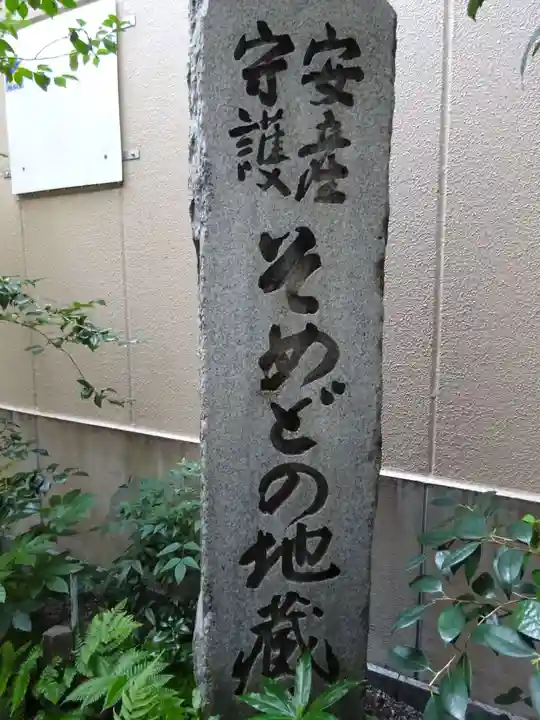 安産
守護
そめどの地蔵